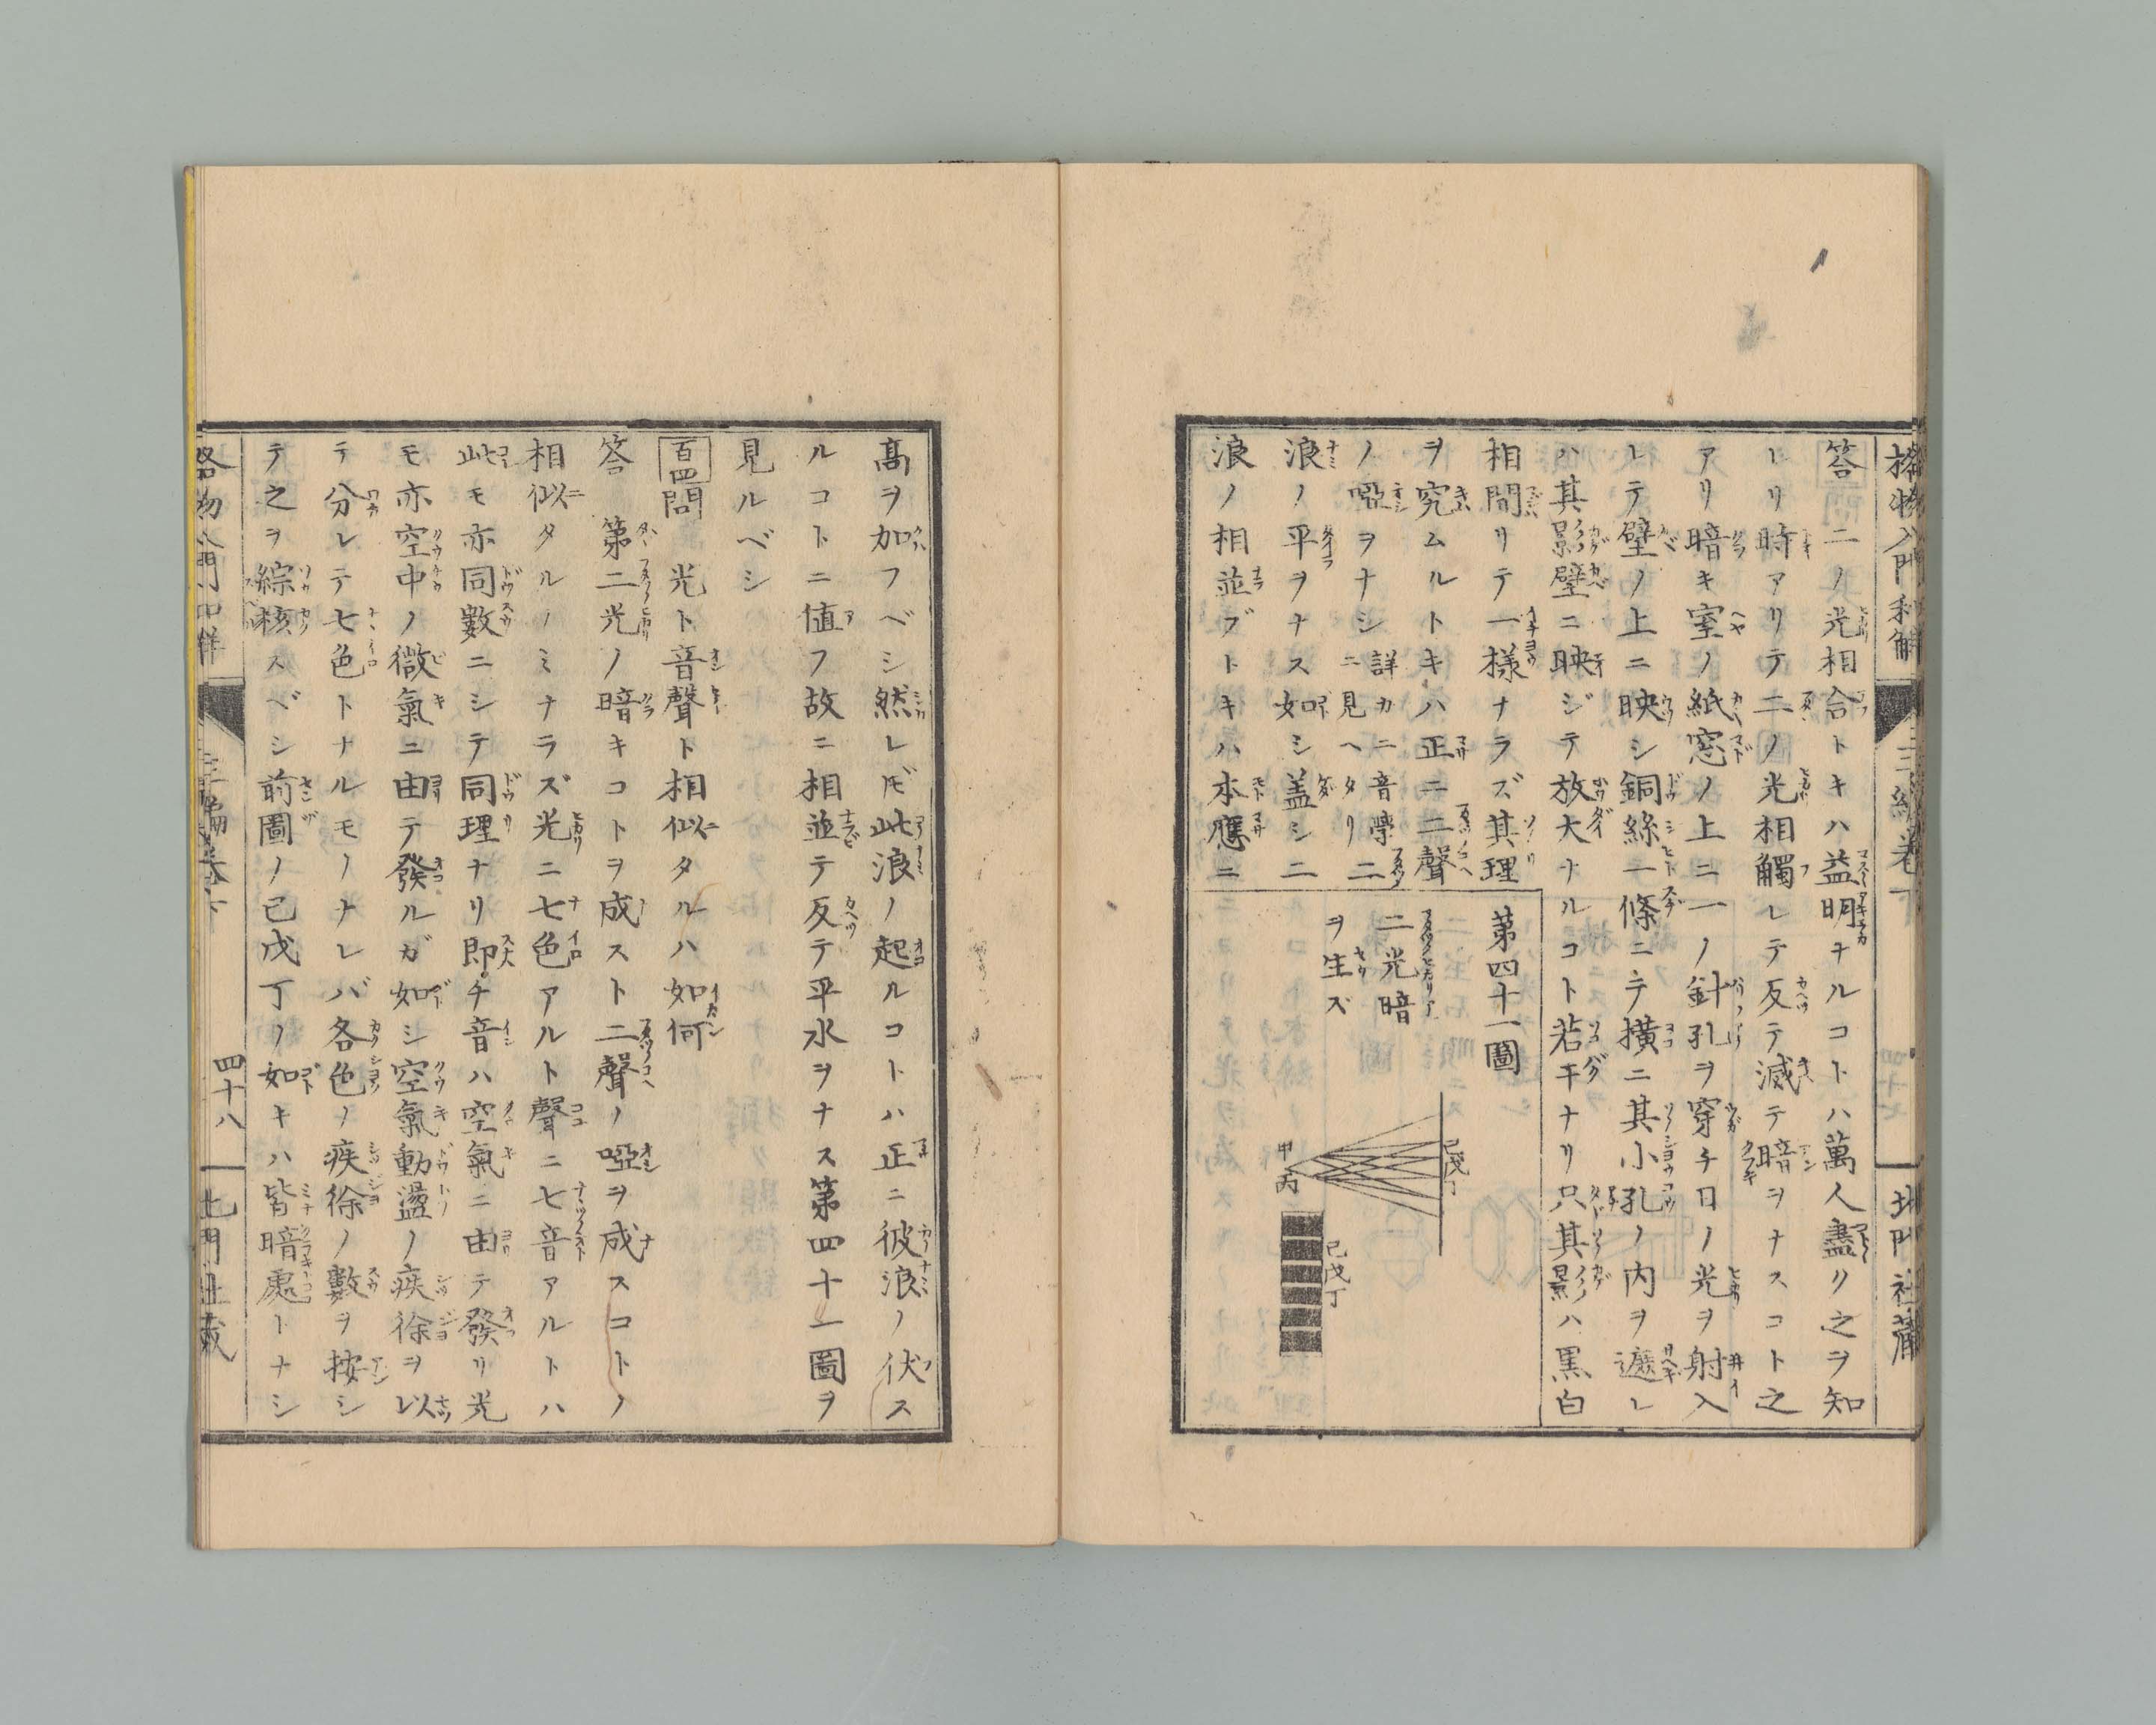 格物入門和解
三編卷下
北門社藏
答　二ノ光相合トキハ益明ナルコトハ萬人盡ク之ヲ知
レリ時アリテ二ノ光相觸レテ反テ滅テ暗ヲナスコト之
アリ暗キ室ノ紙窓ノ上ニ一ノ針孔ヲ穿チ日ノ光ヲ射入
レテ壁ノ上ニ映シ銅絲一條ニテ横ニ其小孔ノ内ヲ遮レ
ハ其影壁ニ映ジテ放大ナルコト若干ナリ只其影ハ黒白
相間リテ一様ナラズ其理
ヲ究ムルトキハ正ニ二聲
ノ啞ヲナシ詳カニ音學ニ見ヘタリ二
浪ノ平ヲナス如シ蓋シ二
浪ノ相並ブトキハ本應ニ
第四十一圖
二光暗
ヲ生ズ
甲
丙
己戊丁
己戊丁
高ヲ加フベシ然レ𪜈此浪ノ起ルコトハ正ニ彼浪ノ伏ス
ルコトニ値フ故ニ相並テ反テ平水ヲナス第四十一圖ヲ
見ルベシ
百四問　光ト音聲ト相似タルハ如何
答　第二光ノ暗キコトヲ成スト二聲ノ啞ヲ成スコトノ
相似タルノミナラズ光ニ七色アルト聲ニ七音アルトハ
此モ亦同數ニシテ同理ナリ即チ音ハ空氣ニ由テ發リ光
モ亦空中ノ微氣ニ由テ發ルガ如シ空氣動盪ノ疾徐ヲ以
テ分レテ七色トナルモノナレバ各色ノ疾徐ノ數ヲ按シ
テ之ヲ綜核スベシ前圖ノ己戊丁ノ如キハ皆暗處トナシ
格物入門和解
三編卷下
四十八
北門社藏